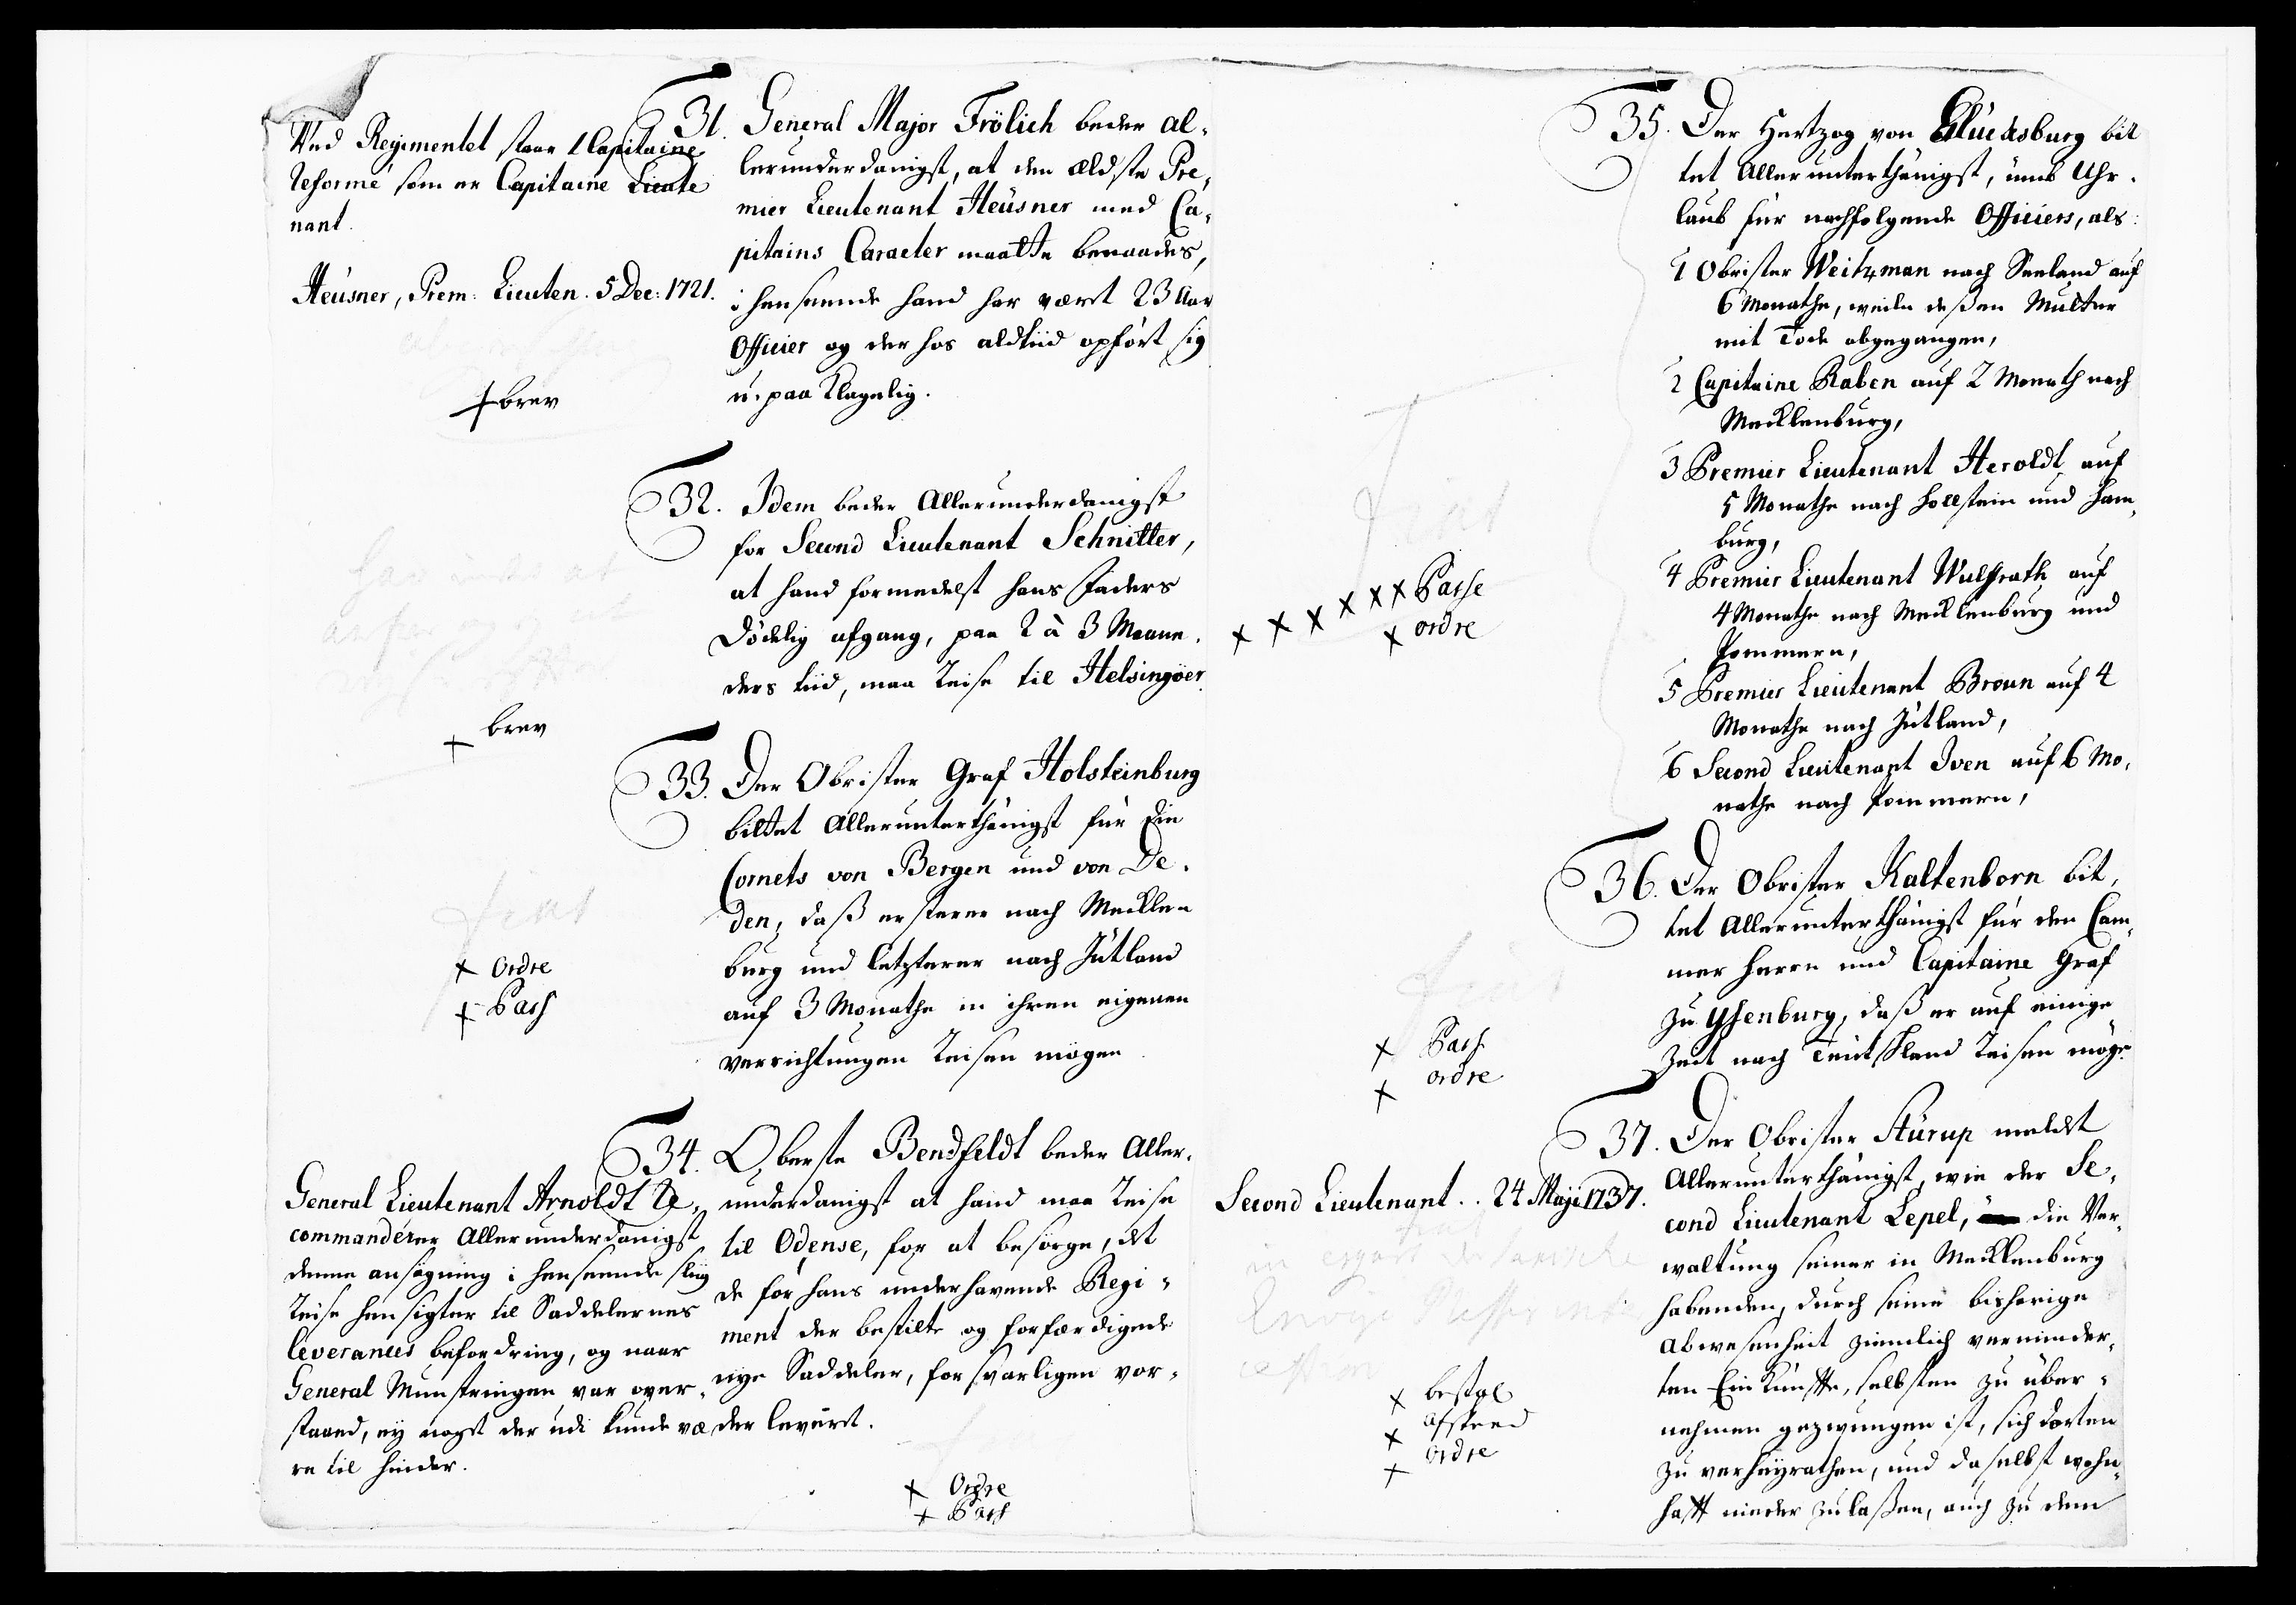 Ved Regimentet staar 1 Capitaine
Reformé som er Capitaine Lieute
nant.
Heüsner, Prem: Lieuten. 5 Dec: 1721.
+ brev
31. General Major Frölich beder al-
lerunderdanigst, at den ældste Pre-
mier Lieutenant Heüsner med Ca-
pitains Caracter maatte benaades,
i henseende hand har været 23 Aar
Officier og der hos altiid opført sig
u-paa Klagelig.
32. Idem beder Allerunderdanigst
for Second Lieutenant Schnitter,
at hand formedelst hans Faders
Dödelig afgang, paa 2 à 3 Maane-
ders tiid, maa Reise til Helsingöer
+ brev
33. Der Obrister Graf Holsteinburg
bittet Allerunterthänigst für die
Cornets von Bergen und von De-
den, daß ersterer nach Mecklen
burg und letzterer nach Jütland
auf 3 Monathe in ihren eigenen
verrichtungen Reisen mögen
fiat
+ Ordre
+ Pass
34. Oberste Bendfeldt beder Aller-
underdanigst at hand maa Reise
til Odense, for at besörge, at
de for hans underhavende Regi-
ment der bestilte og forfærdigede
nye Saddeler, forsvarligen vor-
der leveret.
General Lieutenant Arnoldt Re-
commanderer Allerunderdanigst
denne ansögning i henseende slig
Reise hensigter til Saddelernes
leverances befordring, og naar
General Munstringen var over-
staaed, ey nogst der udi kunde væ
re til hinder.
+ Ordre
+ Pass
35. Der Hertzog von Glücksburg bit
tet Allerunterthänigst, umb Uhr-
laub für nachfolgende Officiers, als:
1 Obrister Weitzman nach Seeland auf
6 Monathe, weile deßen Mutter
mit Tode abgegangen,
2 Capitaine Raben auf 2 Monath nach
Mecklenburg,
3 Premier Lieutenant Heroldt auf
5 Monathe nach Hollstein und Ham-
burg,
4 Premier Lieutenant Wulfrath auf
4 Monathe nach Mecklenburg und
Pommern,
5 Premier Lieutenant Broun auf 4
Monathe nach Jütland,
6 Second Lieutenant Iven auf 6 Mo-
nathe nach Pommern,
fiat
+ + + + + + Passe
+ ordre
36. Der Obrister Kaltenborn bit-
tet Allerunterthänigst für den Cam-
mer Herrn und Capitaine Graf
zu Ysenburg, daß er auf einige
Zeit nach Teutschland Reisen möge
fiat
+ Pass
+ ordre
37. Der Obrister Stürup meldet
Allerunterthänigst, wie der Se-
cond Lieutenant Lepel, die Ver-
waltung seiner in Mecklenburg
habenden, durch seine bisherige
abwesenheit ziemlich verminder-
ten Einkünffte, selbsten zu über-
nehmen gezwungen ist, sich dorten
zu verheyrathen, und daselbst wohn-
hafft nieder zu laßen, auch zu dem
Second Lieutenant . . 24 Maji 1737.
+ bestal
+ afskeed
+ ordre